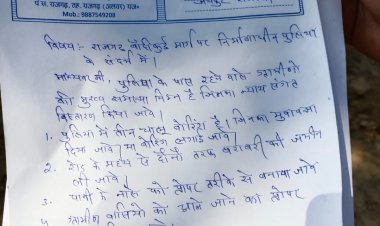 पं.स. राजगढ़, तह. राजगढ़ (अलवर) राज०
Mob.: 9887549208
विषय:- राजगढ़ बांदीकुई मार्ग पर निर्माणाधीन पुलिया
के संदर्भ में।
मान्यवर जी, पुलिया के पास रहने वाले ग्रामीणों
की मुख्य समस्या निम्न है जिसका न्याय संगत
निस्तारण किया जावे।
1. पुलिया में तीन चालू बोरिंग है। जिनका मुवावजा
दिया जावे/या बोरिंग लगाई जावे।
2. रोड के मध्य से दोनों तरफ बराबरी की जमीन
ली जावे।
3. पानी के नाले को प्रोपर तरीके से बनाया जावे
4. ग्रामीण वासियो को आने जाने का प्रोपर